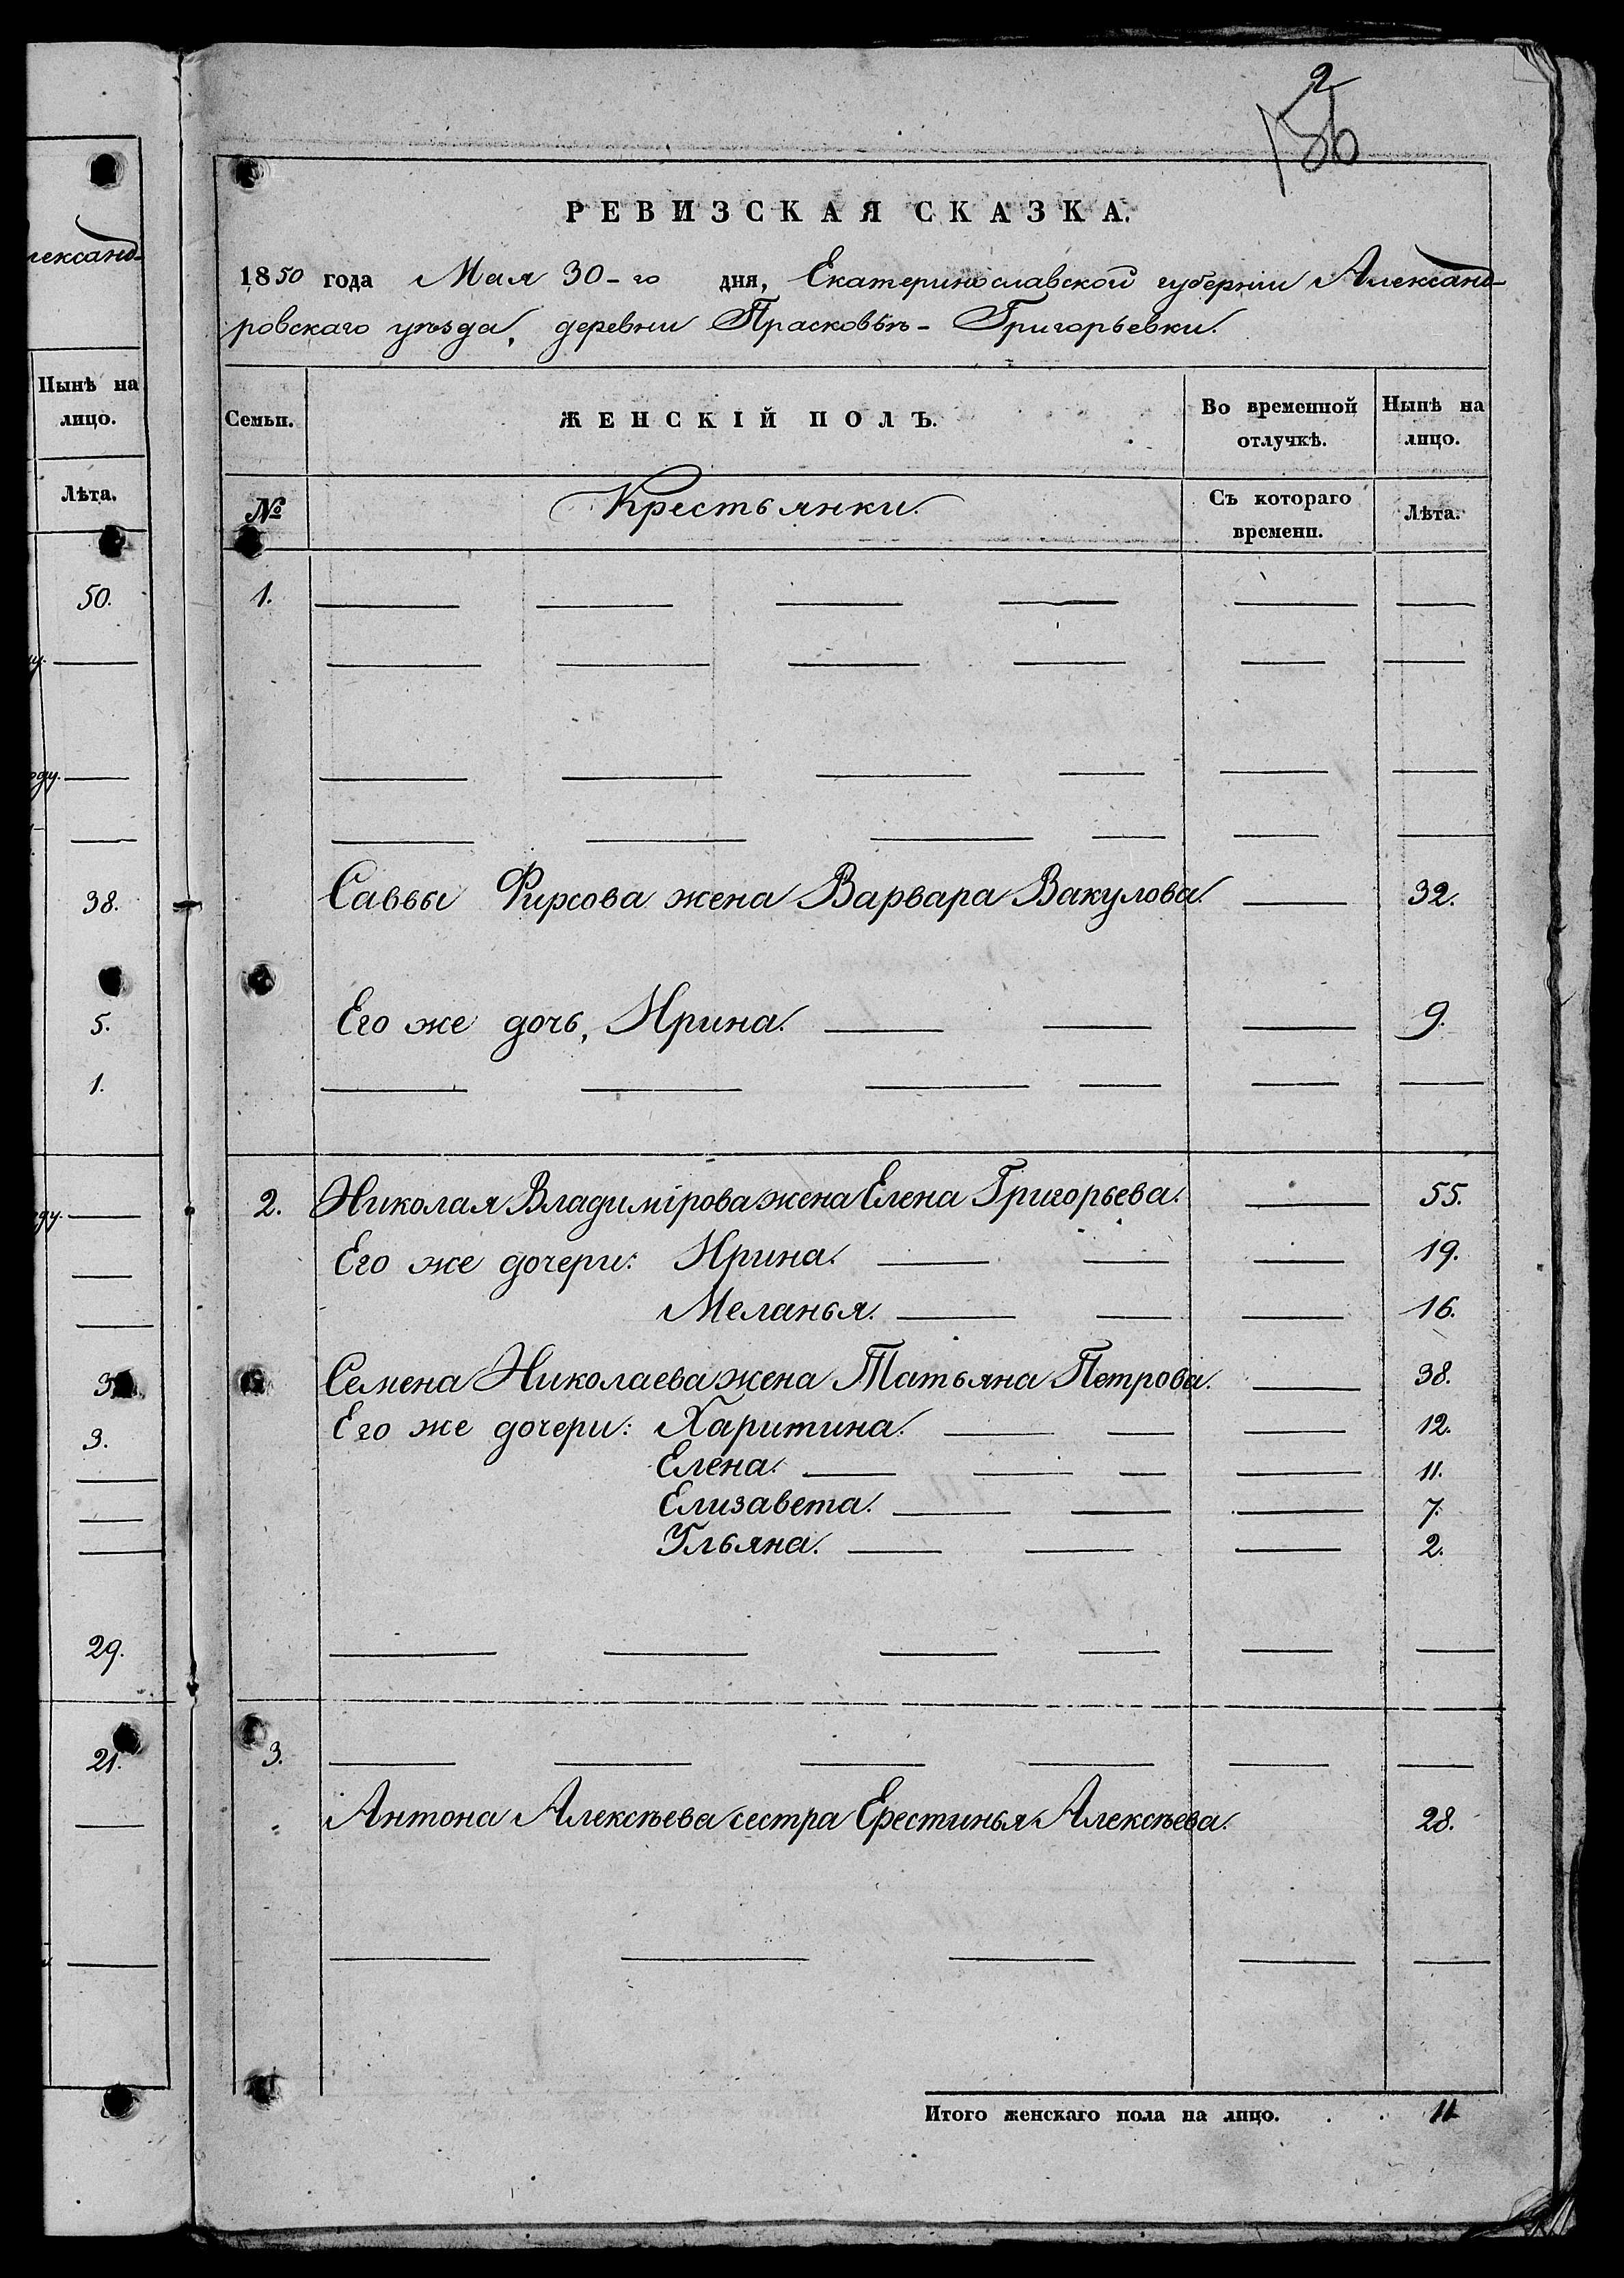 лександ-
Нынѣ на
лицо.
Лѣта.
50.
оду.
38.
5.
1.
3.
29.
21.
2
РЕВИЗСКАЯ СКАЗКА.
1850 года Мая 30-го дня, Екатеринославской губерніи Александ-
ровскаго уѣзда, деревни Прасковѣѣ- Григорьевки.
Семьи.
ЖЕНСКІЙ ПОЛЪ.
Во временной
отлучкѣ.
Нынѣ на
лицо.
№
Крестьянки.
Съ котораго
времени.
Лѣта.
1.
Саввы Фирсова жена Варвара Вакулова. 32.
Его же дочь, Ирина. 9.
2. Николая Владимірова жена Елена Григорьева. 55.
Его же дочери: Ирина. 19.
Меланья. 16.
Семена Николаева жена Татьяна Петрова. 38.
Его же дочери: Харитина. 12.
Елена. 11.
Елизавета. 7.
Ульяна. 2.
3.
Антона Алексѣева сестра Ефестинья Алексѣева. 28.
Итого женскаго пола на лицо. . . 11